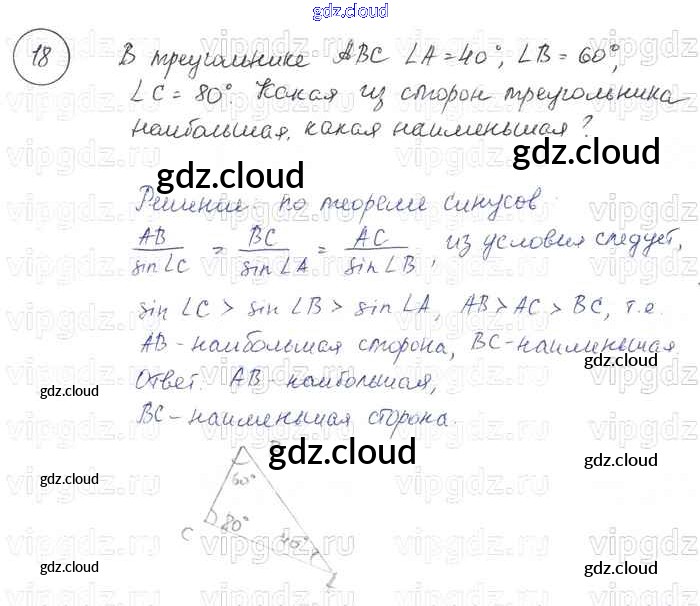 gdz.cloud
18 В треугольнике ABC ∠A = 40°, ∠B = 60°,
∠C = 80°. Какая из сторон треугольника
наибольшая, какая наименьшая?
gdz.cloud
gdz.cloud
Решение. по теореме синусов
AB/sin∠C = BC/sin∠A = AC/sin∠B, из условия следует,
sin ∠C > sin ∠B > sin ∠A, AB > AC > BC, т.е.
AB - наибольшая сторона, BC - наименьшая
Ответ: AB - наибольшая,
gdz.cloud
gdz.cloud
BC - наименьшая сторона.
gdz.cloud
gdz.cloud
60°
C 80°
40°
gdz.cloud
gdz.cloud
vipgdz.ru